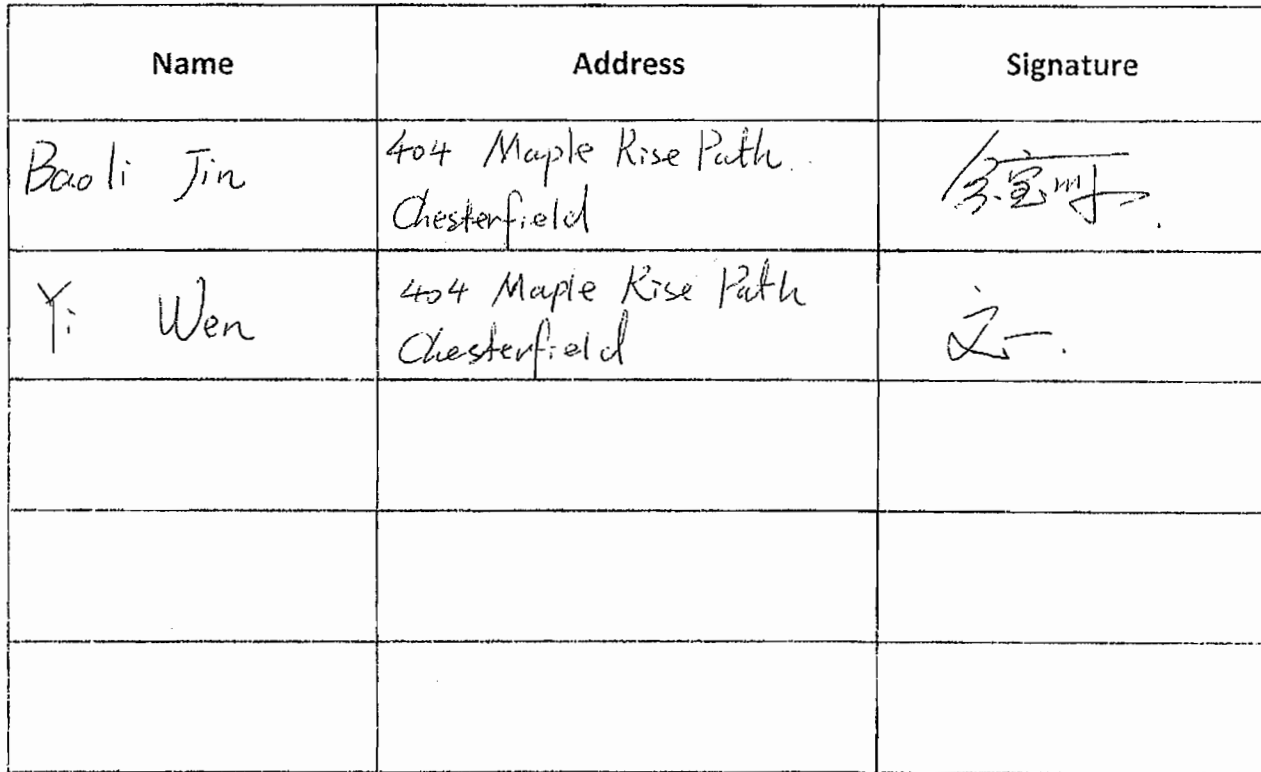 Name Address Signature
Baoli Jin 404 Maple Rise Path
Chesterfield
Yi Wen 404 Maple Rise Path
Chesterfield
文一.